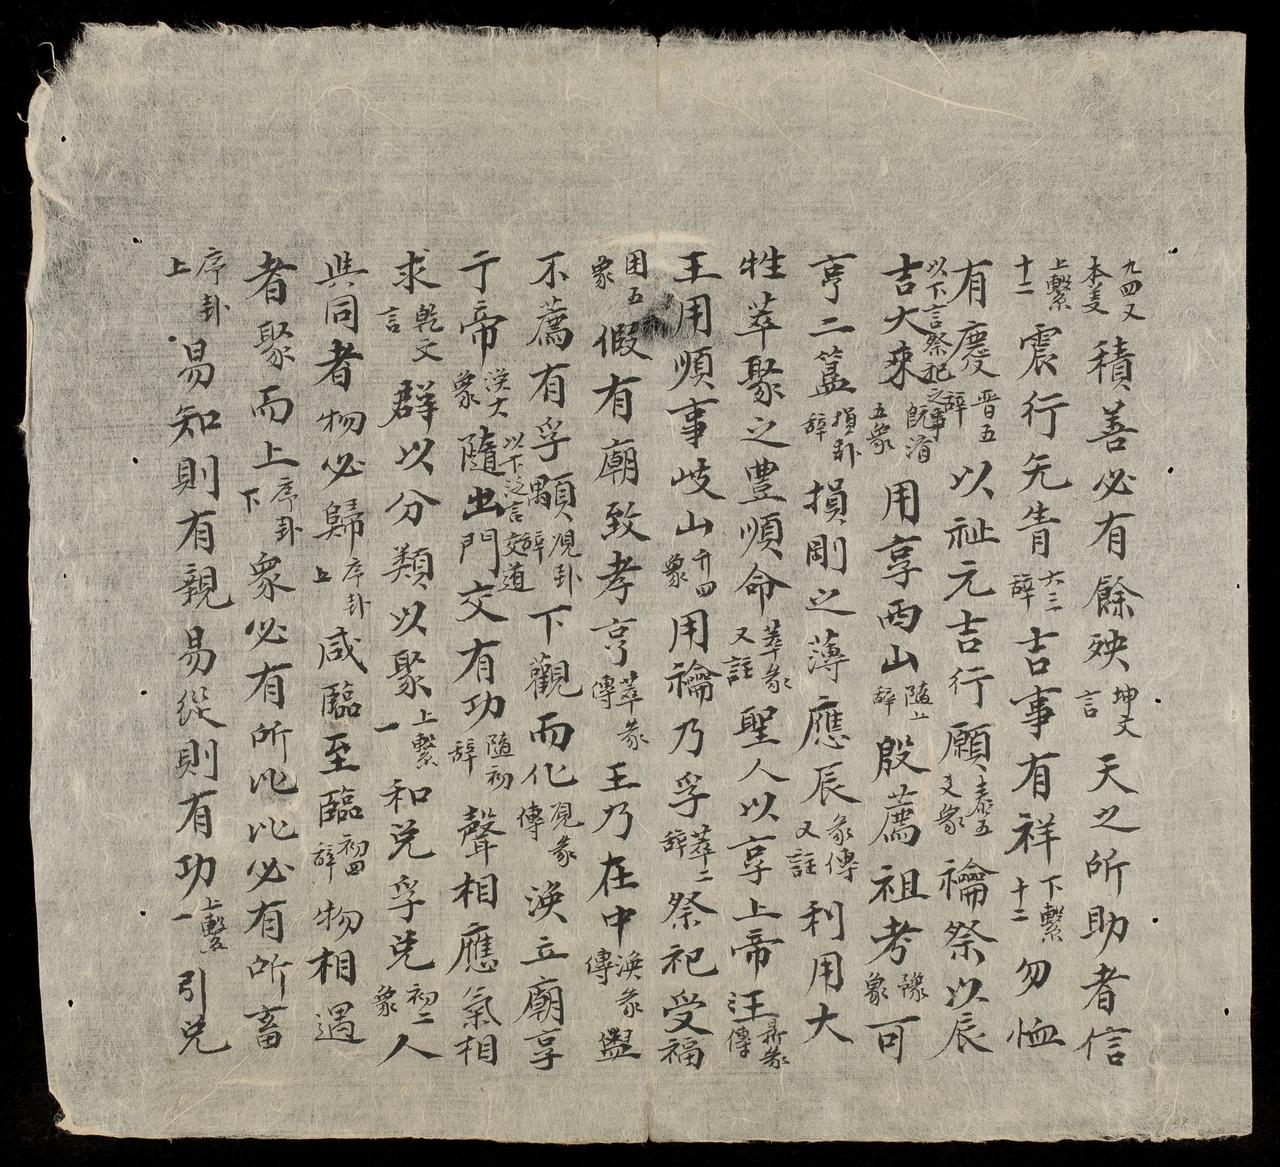 九四又本義積善必有餘殃坤文言天之所助者信
上繫十二震行无眚六三辭吉事有祥下繫十二勿恤
有慶晋五辭以祉元吉行願泰五爻象禴祭以辰
以下言祭祀之事吉大来既濟五象用享西山隨上辭殷薦祖考豫象可
亨二簋損卦辭損剛之薄應辰彖傳又註利用大
牲萃聚之豊順命萃彖又註聖人以享上帝鼎彖傳
王用順事岐山升四象用禴乃孚萃二辭祭祀受福
困五象假有廟致孝亨萃彖傳王乃在中渙彖傳盥
不薦有孚顒觀卦辭下觀而化观彖傳渙立廟享
于帝渙大象以下泛言交道隨出門交有功隨初辭聲相應氣相
求乾文言群以分類以聚上繫一和兌孚兌初二象人
與同者物必歸序卦上咸臨至臨初四辭物相遇
者聚而上序卦下衆必有所比比必有所畜
序卦上易知則有親易從則有功上繫一引兌